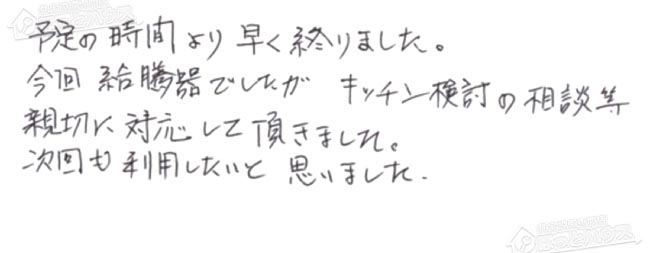 予定の時間より早く終りました。
今回 給騰器でしたが キッチン検討の相談等
親切に対応して頂きました。
次回も利用したいと思いました.